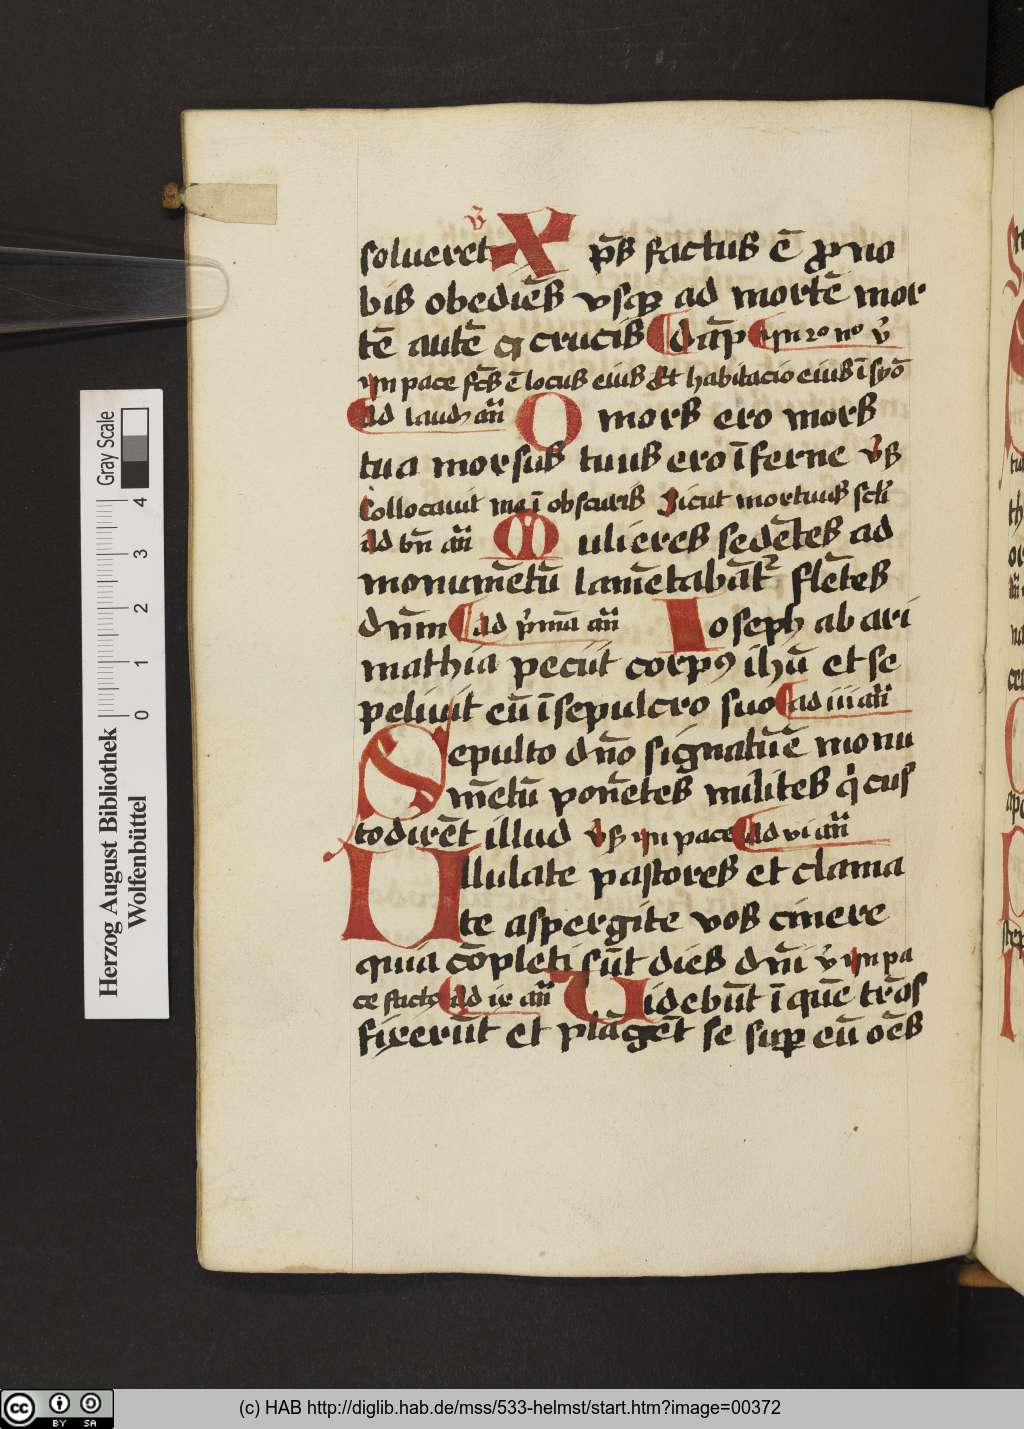 v̄
solueret Xp̄s factus ē ꝓ no
bis obediēs vsqꝫ ad mortē mor
tē autē crucis ad
In pace fc̄s ē locus eius Et habitacio eius ī syō
Ad laud an̄ O mors ero mors
tua morsus tuus ero īferne v̄s
Collocauit me ī obscuris Sicut mortuus
ad bn̄ an̄ Mulieres sedētes ad
monumētū lamētabāt flētes
dn̄m ad p̄ma an̄ Ioseph ab ari
mathia peciit corpꝰ ihū et se
peliuit eū ī sepulcro suo ad iii an̄
Sepulto dn̄o signatū ē monu
mētū ponētes milites q̇ cus
todirēt illud v̄s In pace Ad vi an̄
Ullulate pastores et clama
te aspergite vos cinere
quia cōpleti sūt dies dn̄i v̄ In pa
ce factꝰ ad ix an̄ Uidebūt ī quē trās
fixerūt et plāgēt se suꝑ eū oēs
Herzog August Bibliothek
Wolfenbüttel
Gray Scale
0 1 2 3 4
cc BY SA
(c) HAB http://diglib.hab.de/mss/533-helmst/start.htm?image=00372